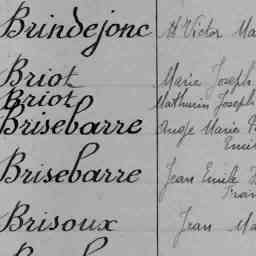 Brindejonc Victor Ma
Briot Marie Joseph
Briot Mathurin Joseph
Brisebarre Ange Marie
Emil
Brisebarre Jean Emile
Fran
Brisoux Jean Ma